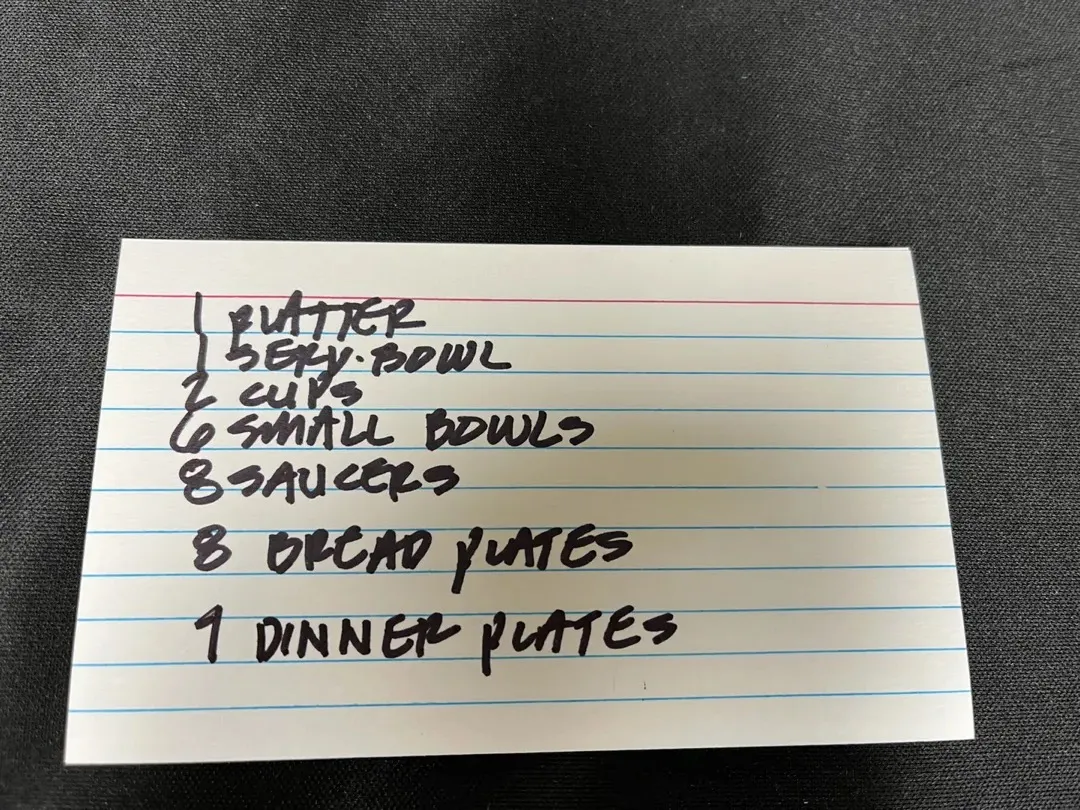 1 PLATTER
1 SERV. BOWL
2 CUPS
6 SMALL BOWLS
8 SAUCERS
8 BREAD PLATES
9 DINNER PLATES